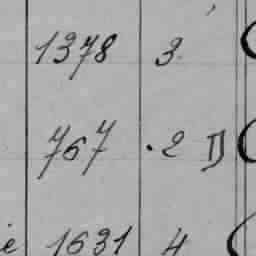 1378 3
767 2 D
ie 1631 4